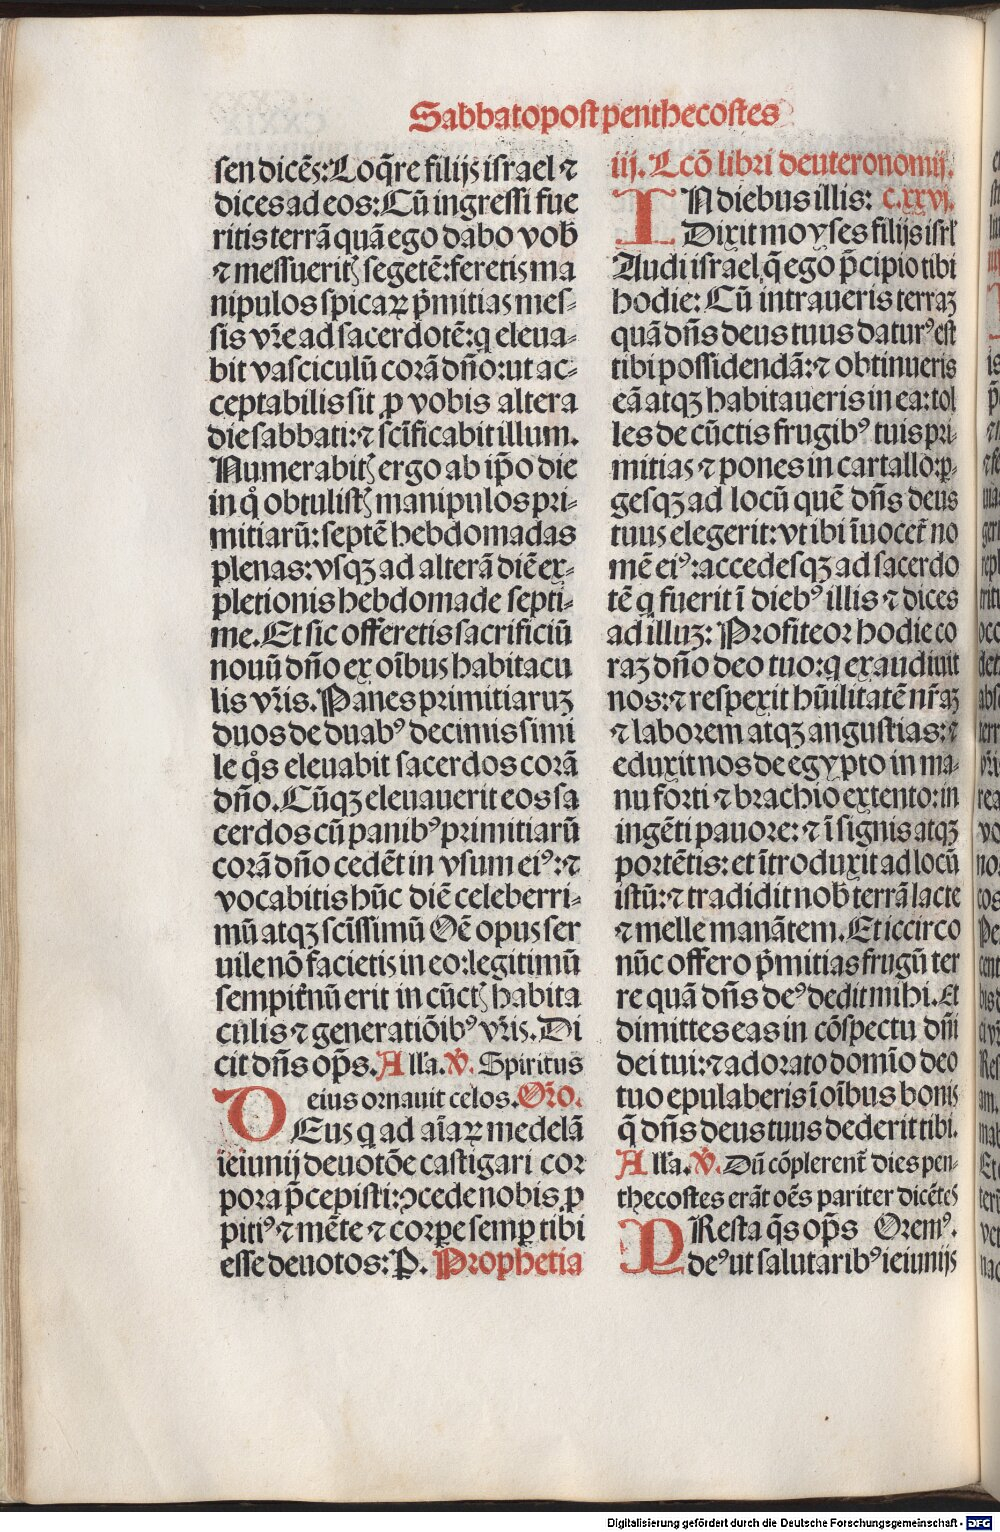 Sabbato post penthecostes
sen dicēs: Loq̄re filijs israel ⁊
dices ad eos: Cū ingressi fue
ritis terrā quā ego dabo vob̄
⁊ messueritꝭ segetē: feretis ma
nipulos spicaꝝ p̄mitias mes⸗
sis vr̄e ad sacerdotē: q eleua⸗
bit vasciculū corā dño: ut ac⸗
ceptabilis sit ꝓ vobis altera
die sabbati: ⁊ sc̄ificabit illum.
Numerabitꝭ ergo ab ip̄o die
in qͦ obtulistꝭ manipulos pri⸗
mitiarū: septē hebdomadas
plenas: vsqꝫ ad alterā diē ex⸗
pletionis hebdomade septi⸗
me. Et sic offeretis sacrificiū
nouū dño ex oībus habitacu
lis vr̄is. Panes primitiaruꝫ
duos de duabꝰ decimis simi
le qͦs eleuabit sacerdos corā
dño. Cūqꝫ eleuauerit eos sa
cerdos cū panibꝰ primitiarū
corā dño cedēt in vsum eiꝰ: ⁊
vocabitis hūc diē celeberri⸗
mū atqꝫ scīssimū Oē opus ser
uile nō facietis in eo: legitimū
sempit̄nū erit in cūctꝭ habita
culis ⁊ generatiōibꝰ vr̄is. Di
cit dn̄s op̄s. All'a. ℣. Spiritus
eius ornauit celos. Or̄o.
DEus q ad aīaꝝ medelā
ieiunij deuotōe castigari cor
pora p̄cepisti: ꝯcede nobis ꝓ
pitiꝰ ⁊ mēte ⁊ corꝑe semꝑ tibi
esse deuotos: P. Prophetia
iij. Lcō libri deuteronomij.
IN diebus illis: c.xxvj.
Dixit moyses filijs isrl'
Audi israel q̄ ego p̄cipio tibi
hodie: Cū intraueris terraꝫ
quā dn̄s deus tuus daturꝰ est
tibi possidendā: ⁊ obtinueris
eā atqꝫ habitaueris in ea: tol
les de cūctis frugibꝰ tuis pri⸗
mitias ⁊ pones in cartallo: ꝑ⸗
gesqꝫ ad locū quē dn̄s deus
tuus elegerit: vt ibi īuocet̄ no
mē eiꝰ: accedesqꝫ ad sacerdo
tē q fuerit ī diebꝰ illis ⁊ dices
ad illuꝫ: Profiteor hodie co
raꝫ dño deo tuo: q exaudiuit
nos: ⁊ respexit hūilitatē nr̄aꝫ
⁊ laborem atqꝫ angustias: ⁊
eduxit nos de egypto in ma⸗
nu forti ⁊ brachio extento: in
ingēti pauore: ⁊ ī signis atqꝫ
portētis: et ītroduxit ad locū
istū: ⁊ tradidit nob̄ terrā lacte
⁊ melle manātem. Et iccirco
nūc offero p̄mitias frugū ter
re quā dn̄s deꝰ dedit mihi. Et
dimittes eas in cōspectu dn̄i
dei tui: ⁊ adorato domīo deo
tuo epulaberis ī oībus bonis
q̄ dn̄s deus tuus dederit tibi.
All'a. ℣. Dū cōplerent̄ dies pen⸗
thecostes erāt oēs pariter dicētes
PResta q̄s op̄s Oremꝰ.
deꝰ ut salutaribꝰ ieiunijs
Digitalisierung gefördert durch die Deutsche Forschungsgemeinschaft - DFG